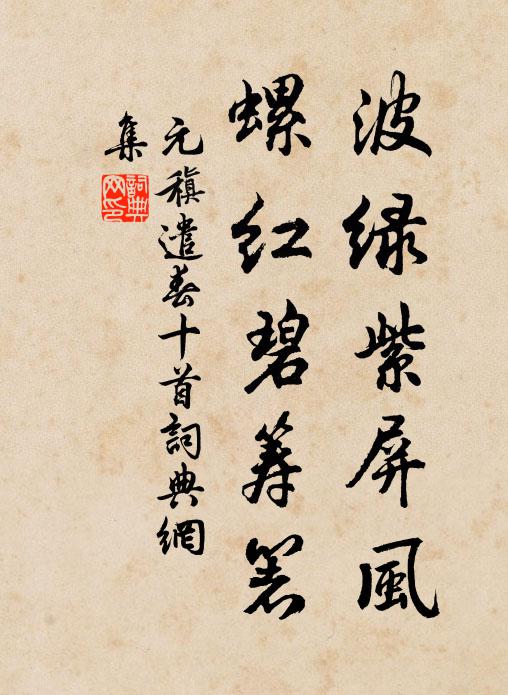 波绿紫屏風
螺红碧筹箸
元稹遣春十首詞典網
集
詞典
网印